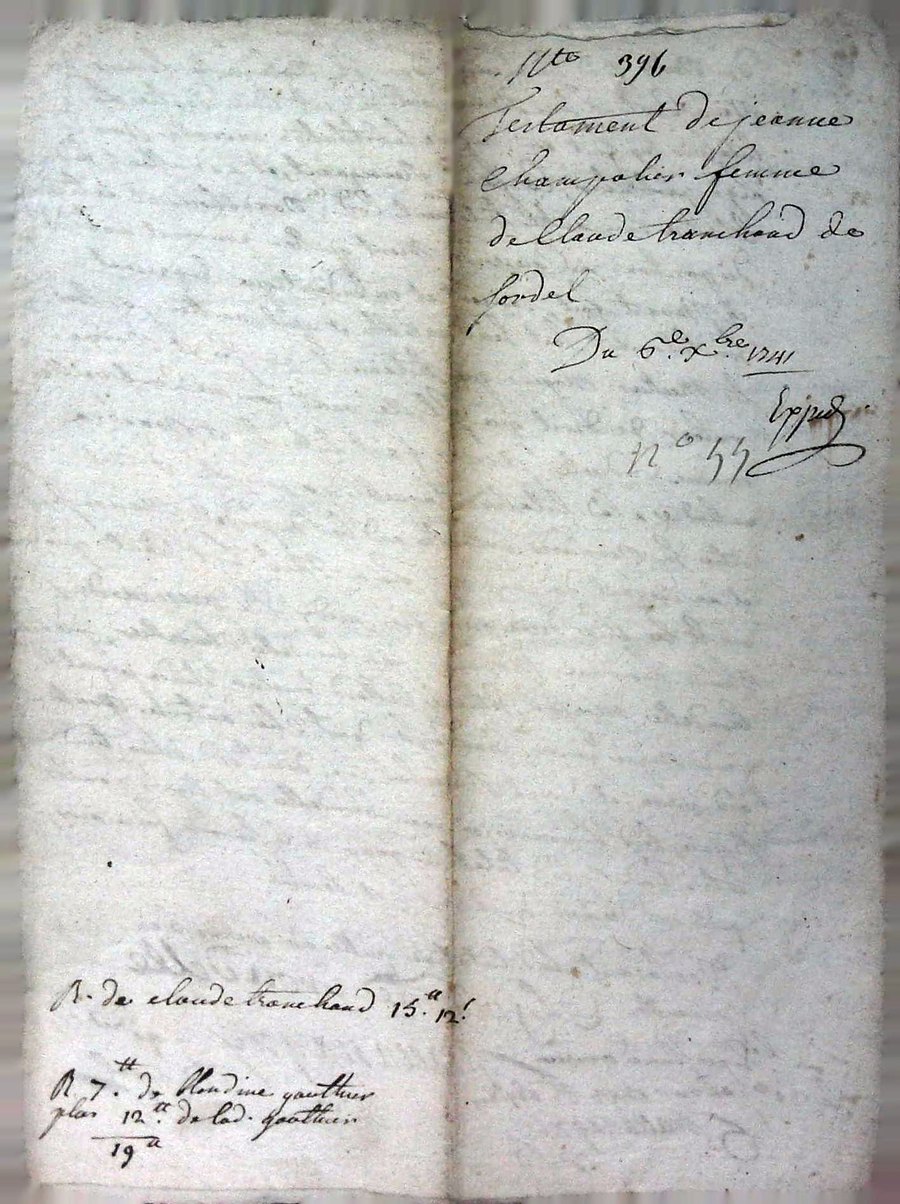 396
Testament de jeanne
Champalier femme
de Claude tranchand de
sordel
Du 6e. Xbre. 1741
Exped
no 55
R. de claude tranchand 15.tt 12.s
R 7.tt de Claudine gauthier
plus 12.tt de lad. gauthier
19tt